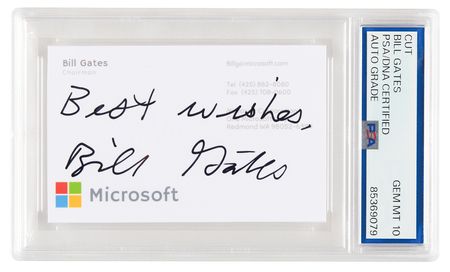 Bill Gates
Chairman
Billg@microsoft.com
Tel (425) 882-8080
Best wishes,
Redmond WA
Bill Gates
Microsoft
CUT
BILL GATES
PSA/DNA CERTIFIED
AUTO GRADE
PSA
GEM MT 10
85369079